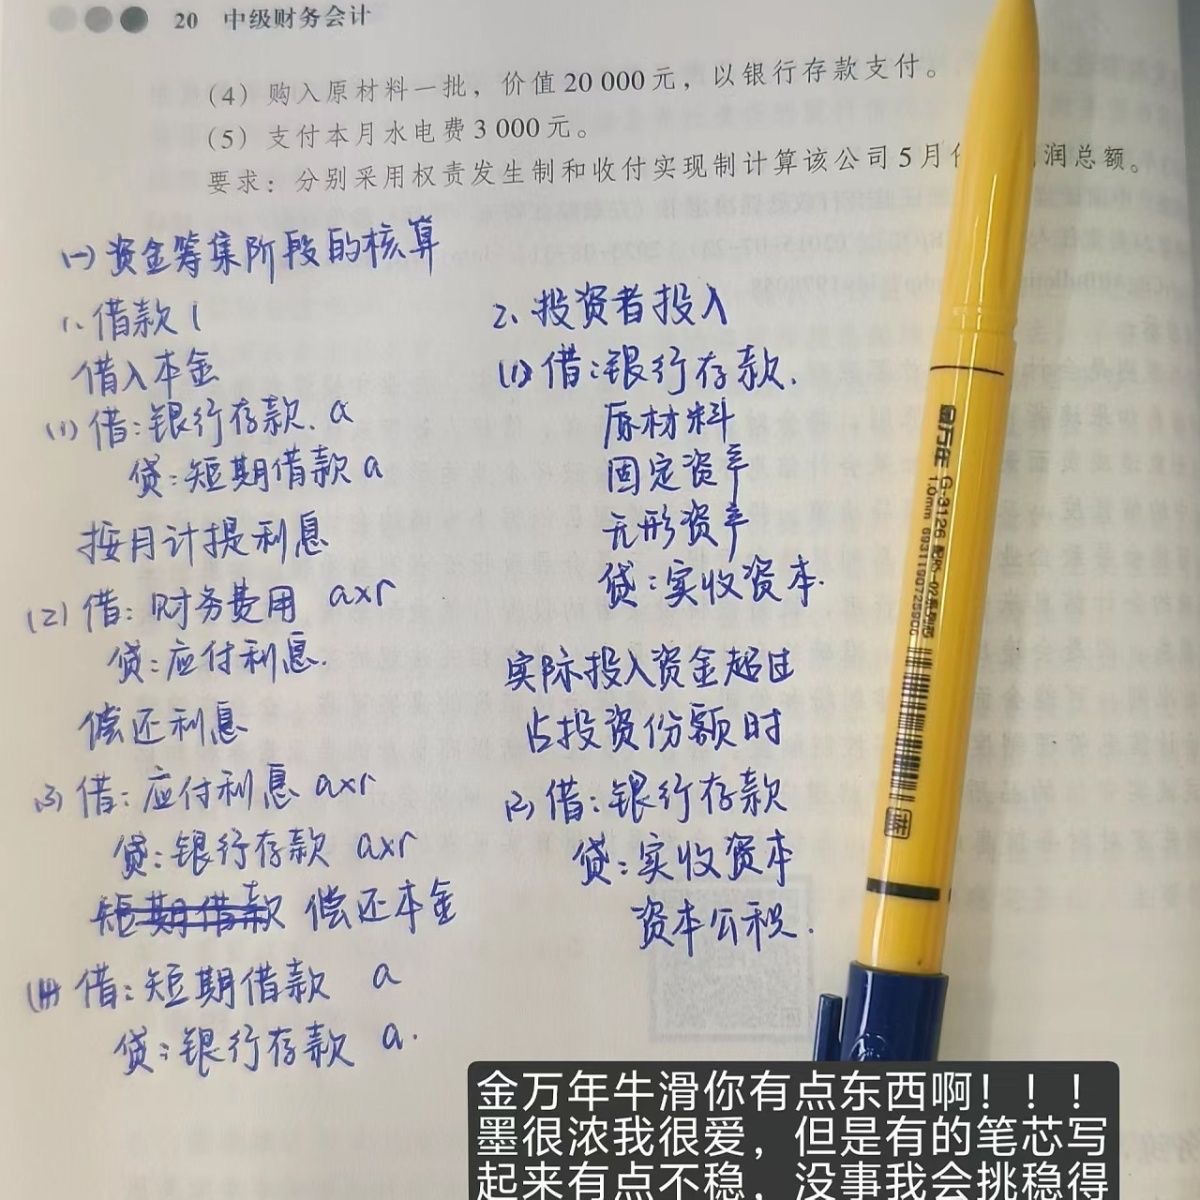 20 中级财务会计
(4) 购入原材料一批，价值20 000元，以银行存款支付。
(5) 支付本月水电费3 000元。
要求：分别采用权责发生制和收付实现制计算该公司5月份 润总额。
(一) 资金筹集阶段的核算
1、借款1
借入本金
(1) 借：银行存款. a
贷：短期借款 a
按月计提利息
(2) 借：财务费用 axr
贷：应付利息.
偿还利息
(3) 借：应付利息 axr
贷：银行存款 axr
短期借款 偿还本金
(4) 借：短期借款 a
贷：银行存款 a.
2、投资者投入
(1) 借：银行存款.
原材料
固定资产
无形资产
贷：实收资本.
实际投入资金超过
占投资份额时
(2) 借：银行存款
贷：实收资本
资本公积.
金万年 G-3126
1.0mm 6931190725906
蓝
金万年牛滑你有点东西啊！！！
墨很浓我很爱，但是有的笔芯写
起来有点不稳，没事我会挑稳得